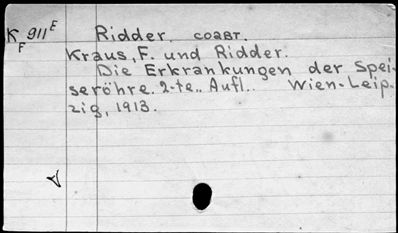 K 911 E Ridder. соавт.
F
Kraus, F. und Ridder.
Die Erkrankungen der Spei-
seröhre. 2-te.. Aufl.. Wien-Leip-
zig, 1913.